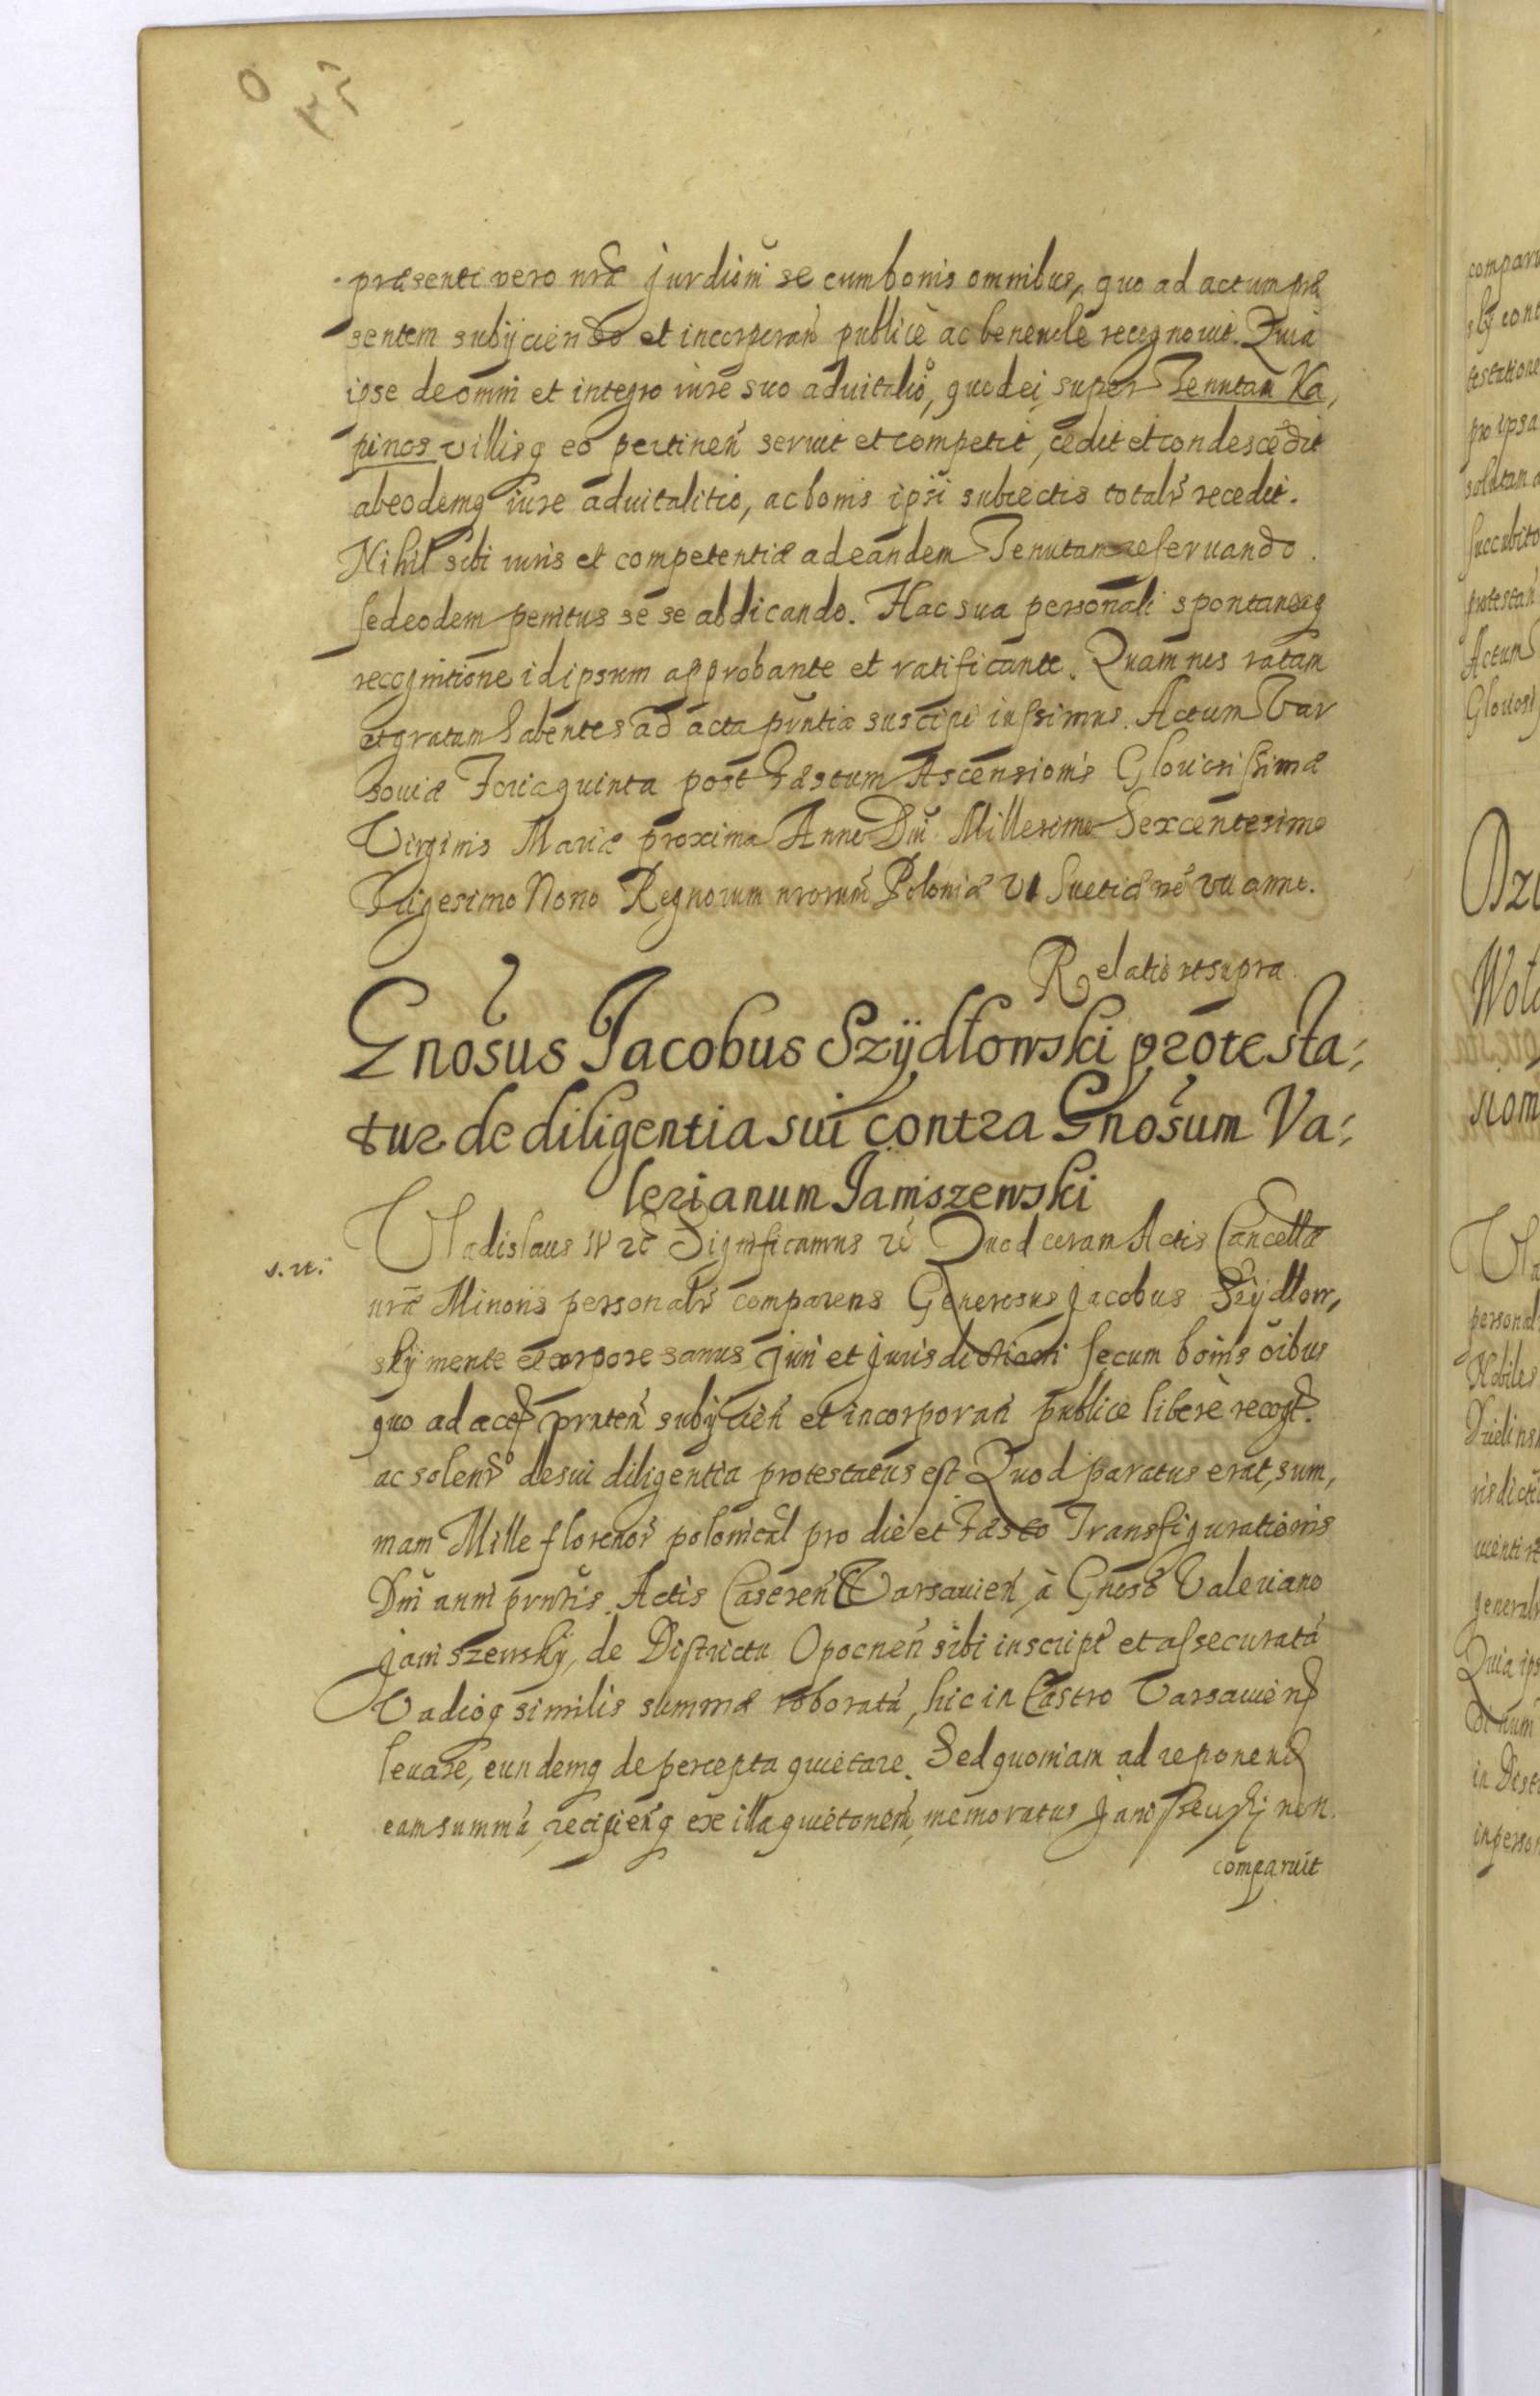 præsenti vero nræ jurdioni se cum bonis omnibus, quo ad actum præ
sentem subijciendo et incorporan publicè ac benevole recognovit. Quia
ipse de omni et integro iure suo advitalio, quod ei super Tenutam Ka,
pinos villisq eo pertinen servit et competit, cedit et condescedit
ab eodemq iure advitalitio, ac bonis ipsi subiectis totalr recedit.
Nihil sibi iuris et competentiæ ad eandem Tenutam reservando.
sed eodem penitus se se abdicando. Hac sua personali spontaneaq
recognitione id ipsum approbante et ratificante. Quam nos ratam
et gratam habentes ad acta pñtia suscipi iussimus. Actum Var
soviæ Feria quinta post Fæstum Ascensionis Gloriosissimæ
Virginis Mariæ proxima Anno Dñi Millesimo Sexcentesimo
Trigesimo Nono Regnorum nrorum Poloniæ VI Suetiæ vë VII anno.
Relatio ut supra
Gnosus Jacobus Szÿdłowski protesta:
tur de diligentia sui contra Gnosum Va:
lerianum Janiszewski
s. rt.
Vladislaus IV etc Significamus etc Quod coram Actis Cancellæ
nræ Minoris personalr comparens Generosus Jacobus Szÿdlow,
skÿ mente et corpore sanus Juri et Jurisdictioni se cum bonis oibus
quo ad actum pñtem subijcien et incorporan publice liberè recogt.
ac solenr de sui diligentia protestatus est Quod paratus erat, sum,
mam Mille florenor polonical pro die et Fæsto Transfigurationis
Dñi anni pñtis Actis Castren Varsavien à Gnoso Valeriano
Janiszewskÿ, de Districtu Opocnen sibi inscript et assecuratá
Vadioq similis summæ roboratá, hic in Castro Varsavien
levare, eundemq de percepta quietare. Sed quoniam ad reponend
eam summá, recipienq ex illa quietonem, memoratus Janiszewskÿ non
comparuit